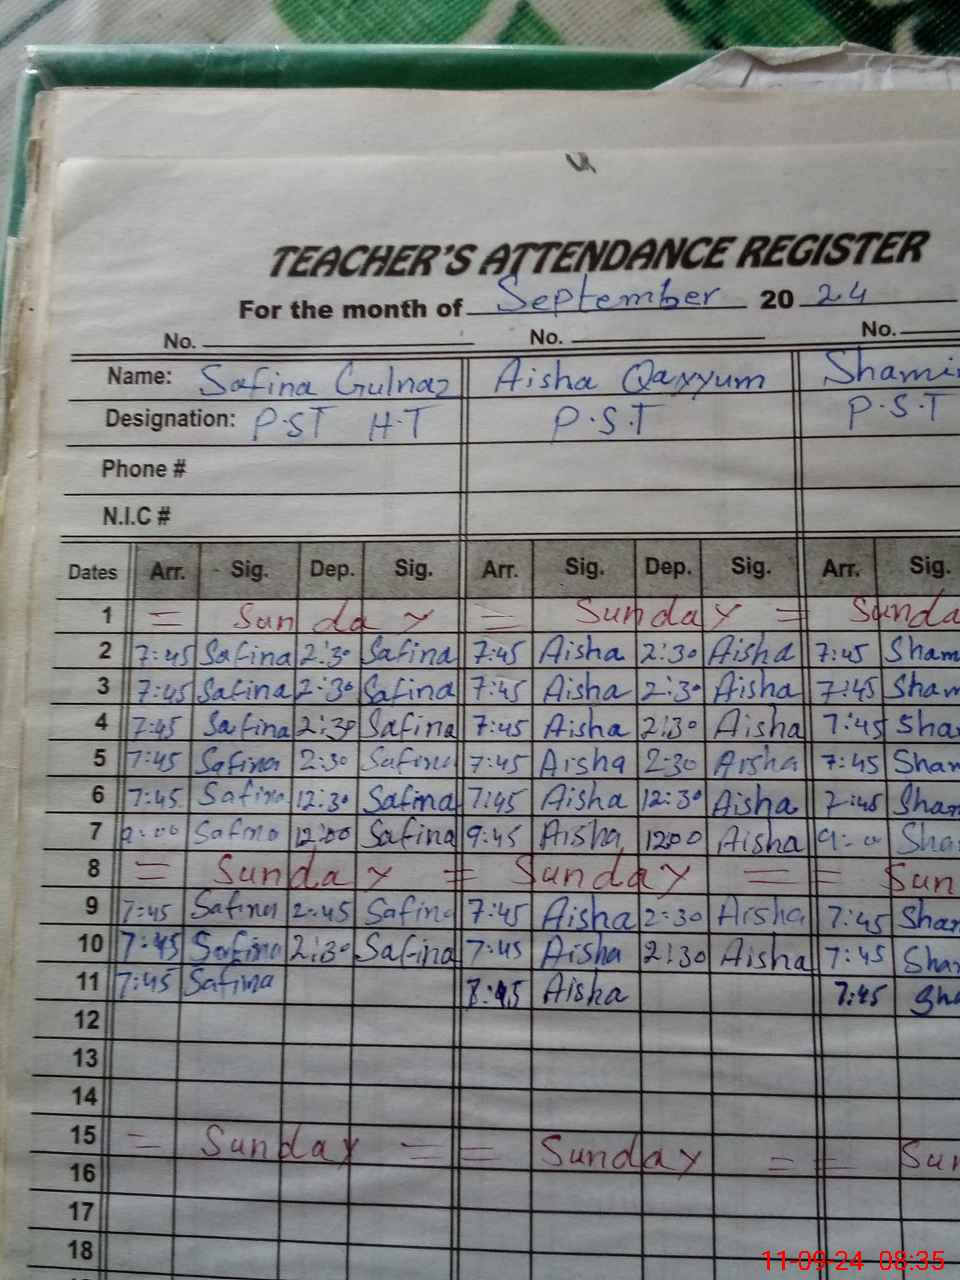 TEACHER'S ATTENDANCE REGISTER
For the month of September 20 24
No. No. No.
Name: Safina Gulnaz Aisha Qayyum Shami
Designation: P.ST H.T P.S.T P.S.T
Phone #
N.I.C #
Dates Arr. Sig. Dep. Sig. Arr. Sig. Dep. Sig. Arr. Sig.
1 = Sunday = Sunday = Sunda
2 7:45 Safina 2:30 Safina 7:45 Aisha 2:30 Aisha 7:45 Sham
3 7:45 Safina 2:30 Safina 7:45 Aisha 2:30 Aisha 7:45 Sham
4 7:45 Safina 2:30 Safina 7:45 Aisha 2:30 Aisha 7:45 Sha
5 7:45 Safina 2:30 Safina 7:45 Aisha 2:30 Aisha 7:45 Sham
6 7:45 Safina 12:30 Safina 7:45 Aisha 12:30 Aisha 7:45 Sham
7 9:00 Safina 12:00 Safina 9:45 Aisha 1200 Aisha 9:00 Sha
8 = Sunday = Sunday = = Sun
9 7:45 Safina 2:45 Safina 7:45 Aisha 2:30 Aisha 7:45 Sham
10 7:45 Safina 2:30 Safina 7:45 Aisha 2:30 Aisha 7:45 Sha
11 7:45 Safina Aisha 7:45 Sha
12
13
14
15 = Sunday = = Sunday = = Sun
16
17
18
11-09-24 08:35